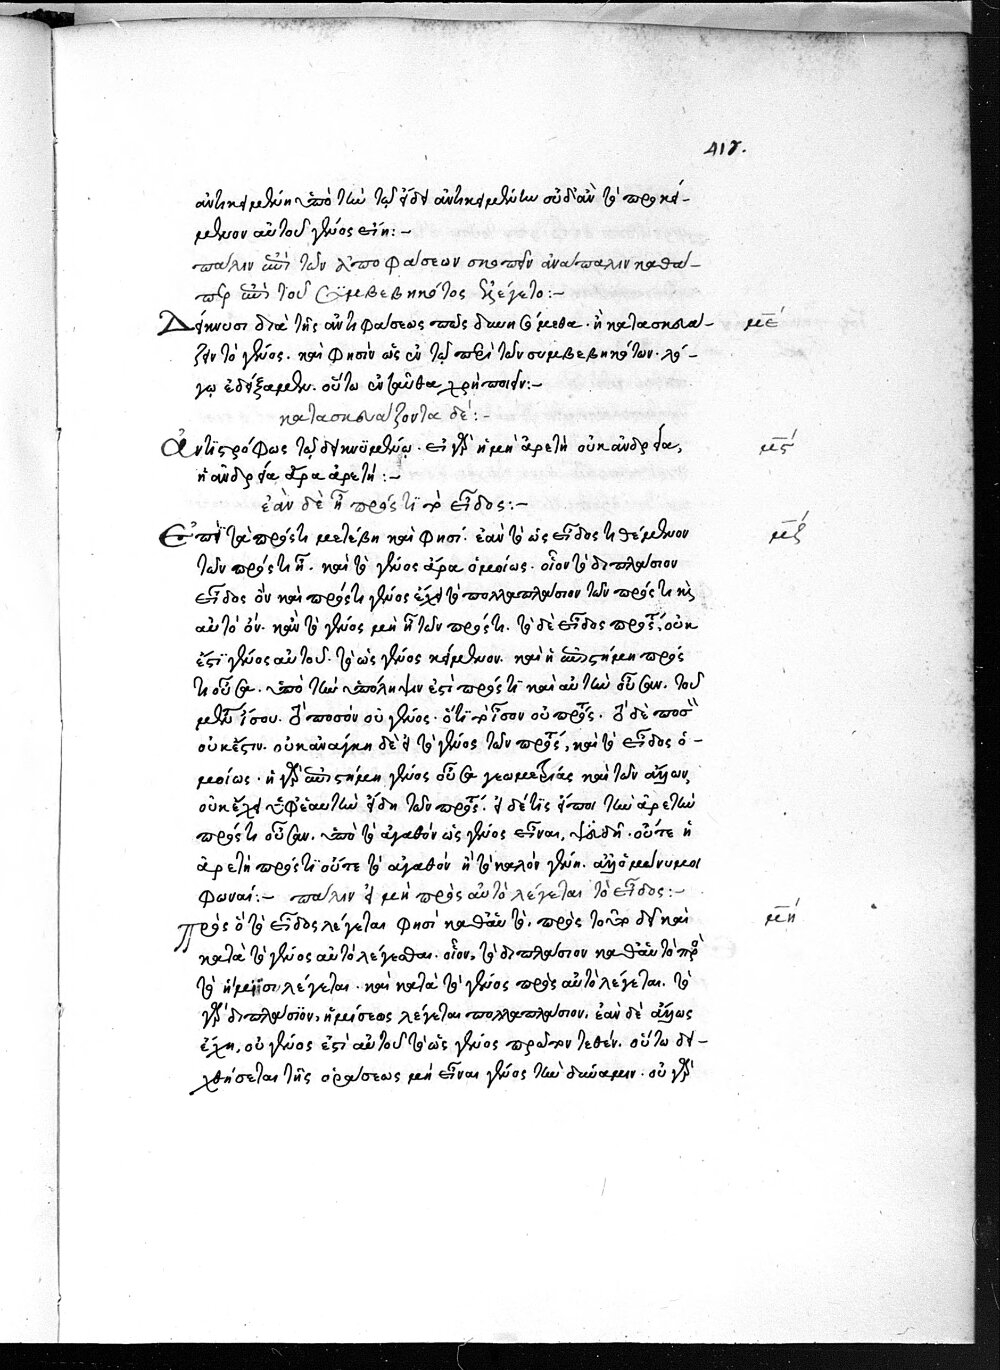 417.
ἀντικειμένη ὑπὸ τὴν τῷ εἴδει ἀντικειμένην οὐδ' ἂν τὸ προκεί-
μενον αὐτοῦ γένος εἴη:-
πάλιν ἐπὶ τῶν ἀποφάσεων σκοπεῖν ἀνάπαλιν καθά-
περ ἐπὶ τοῦ συμβεβηκότος ἐλέγετο:-
Δείκνυσι διὰ τῆς ἀντιφάσεως πῶς δυνησόμεθα. ἢ κατασκευά- με´
ζειν τὸ γένος. καὶ φησὶν ὡς ἐν τῷ περὶ τῶν συμβεβηκότων. λό-
γῳ ἐδείξαμεν. οὕτω ἐνταῦθα χρὴ ποιεῖν:-
κατασκευάζοντα δέ:-
Ἀντιστρόφως τῷ δεικνυμένῳ. εἰ γὰρ ἡ μὴ ἀρετὴ οὐκ ἀνδρία, μς´
ἡ ἀνδρία ἄρα ἀρετή:-
ἐὰν δὲ ᾖ πρός τι τὸ εἶδος:-
Ἐπὶ τὰ πρός τι μετέβη καὶ φησί. ἐὰν τὸ ὡς εἶδος τιθέμενον μζ´
τῶν πρός τι ᾖ. καὶ τὸ γένος ἄρα ὁμοίως. οἷον τὸ διπλάσιον
εἶδος ὂν καὶ πρός τι γένος ἔχει τὸ πολλαπλάσιον τῶν πρός τι καὶ
αὐτὸ ὄν. κἂν τὸ γένος μὴ ᾖ τῶν πρός τι. τὸ δὲ εἶδος πρός τι, οὐκ
ἔστι γένος αὐτοῦ. τὸ ὡς γένος κείμενον. καὶ ἡ ἐπιστήμη πρός
τι οὖσα. ὑπὸ τὴν ὑπόληψιν ἐστὶ πρός τι καὶ αὐτὴν οὖσαν. τοῦ
μέντοι ἴσου. τὸ ποσὸν οὐ γένος. ὅτι τὸ ἴσον οὐ πρός τι. τὸ δὲ ποσὸν
οὐκ ἔστιν. οὐκ ἀνάγκη δὲ εἰ τὸ γένος τῶν πρός τι, καὶ τὸ εἶδος ὁ-
μοίως. ἡ γὰρ ἐπιστήμη γένος οὖσα γεωμετρίας καὶ τῶν ἄλλων,
οὐκ ἔχει ὑφ' ἑαυτὴν εἴδη τῶν πρός τι. εἰ δέ τις εἴποι τὴν ἀρετὴν
πρός τι οὖσαν. ὑπὸ τὸ ἀγαθὸν ὡς γένος εἶναι, ψευδῆ. οὔτε ἡ
ἀρετὴ πρός τι οὔτε τὸ ἀγαθὸν ἢ τὸ καλὸν γένη. ἀλλ' ὁμώνυμοι
φωναί:- πάλιν εἰ μὴ πρὸς αὐτὸ λέγεται τὸ εἶδος:-
Πρὸς ὃ τὸ εἶδος λέγεται φησὶ καθ' αὑτό, πρὸς τοῦτο δεῖ καὶ μη´
κατὰ τὸ γένος αὐτὸ λέγεσθαι. οἷον, τὸ διπλάσιον καθ' αὑτὸ πρὸς
τὸ ἥμισυ λέγεται. καὶ κατὰ τὸ γένος πρὸς αὐτὸ λέγεται. τὸ
γὰρ διπλάσιον, ἡμίσεως λέγεται πολλαπλάσιον. ἐὰν δὲ ἄλλως
ἔχῃ, οὐ γένος ἐστὶ αὐτοῦ τὸ ὡς γένος πρῶτον τεθέν. οὕτω δει-
χθήσεται τῆς ὁράσεως μὴ εἶναι γένος τὴν δύναμιν. οὐ γὰρ